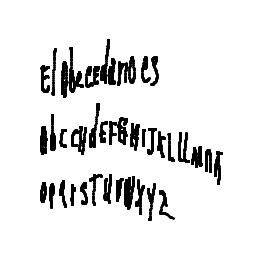 El Abecedario es
Abcchdefghijklllmnñ
opqrstuvwxyz